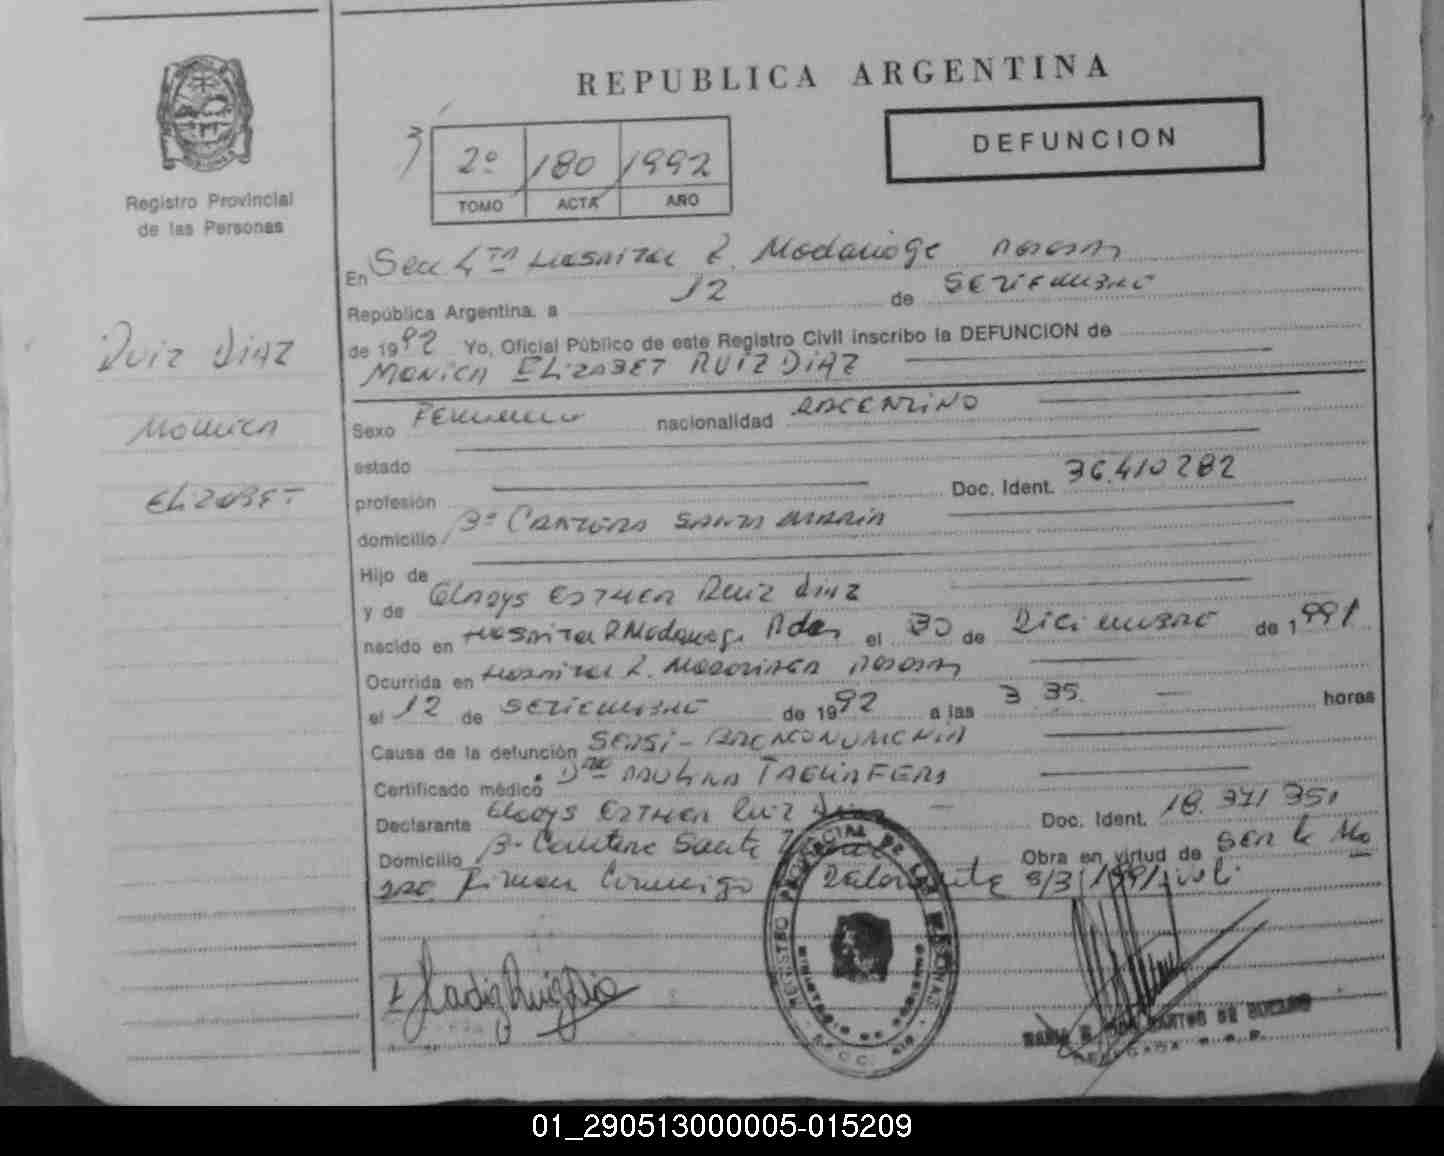 REPUBLICA ARGENTINA
DEFUNCION
2º 180 1992
TOMO ACTA AÑO
Registro Provincial
de las Personas
RUIZ DIAZ
MONICA
ELIZABET
En Secc 4ta HOSPITAL R. Madariaga POSADAS
República Argentina, a 12 de SETIEMBRE
de 1992 Yo, Oficial Público de este Registro Civil inscribo la DEFUNCION de
MONICA ELIZABET RUIZ DIAZ
Sexo FEMENINO nacionalidad ARGENTINO
estado
profesión Doc. Ident. 36.410282
domicilio Bº CANTERA SANTA MARIA
Hijo de
y de GLADYS ESTHER Ruiz DIAZ
nacido en HOSPITAL R Madariaga Pdas el 30 de DICIEMBRE de 1991
Ocurrida en HOSPITAL R. MADARIAGA POSADAS
el 12 de SETIEMBRE de 1992 a las 3 35. horas
Causa de la defunción SEPSI - BRONCONUMONIA
Certificado médico Dra PAULINA
Declarante Gladys ESTHER Ruiz Diaz Doc. Ident. 18.371 351
Domicilio Bº Cantera Santa Obra en virtud de SER la Ma
dre Firman Conmigo
REGISTRO PROVINCIAL DE LAS PERSONAS
MINISTERIO DE GOBIERNO
DE BUENO
01_290513000005-015209